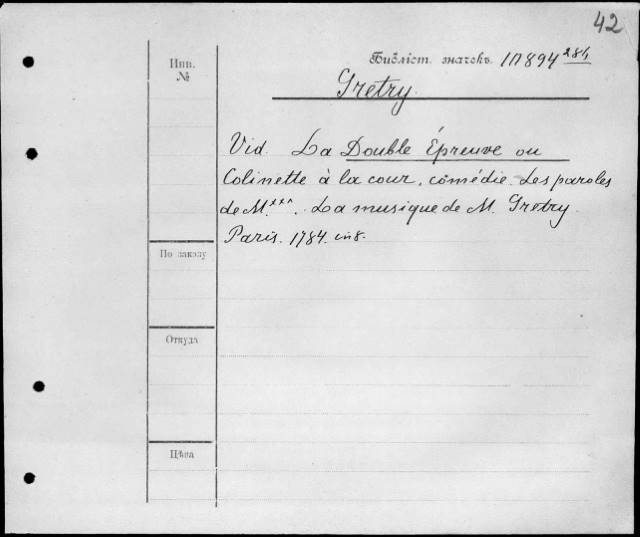 42
Инв.
№
Библіот. значекъ. 1П894 28h
Gretry.
Vid. La Double Épreuve ou
Colinette à la cour, comédie. Les paroles
de M.***. La musique de M. Gretry.
Paris. 1784. in 8.
По заказу
Откуда
Цѣна